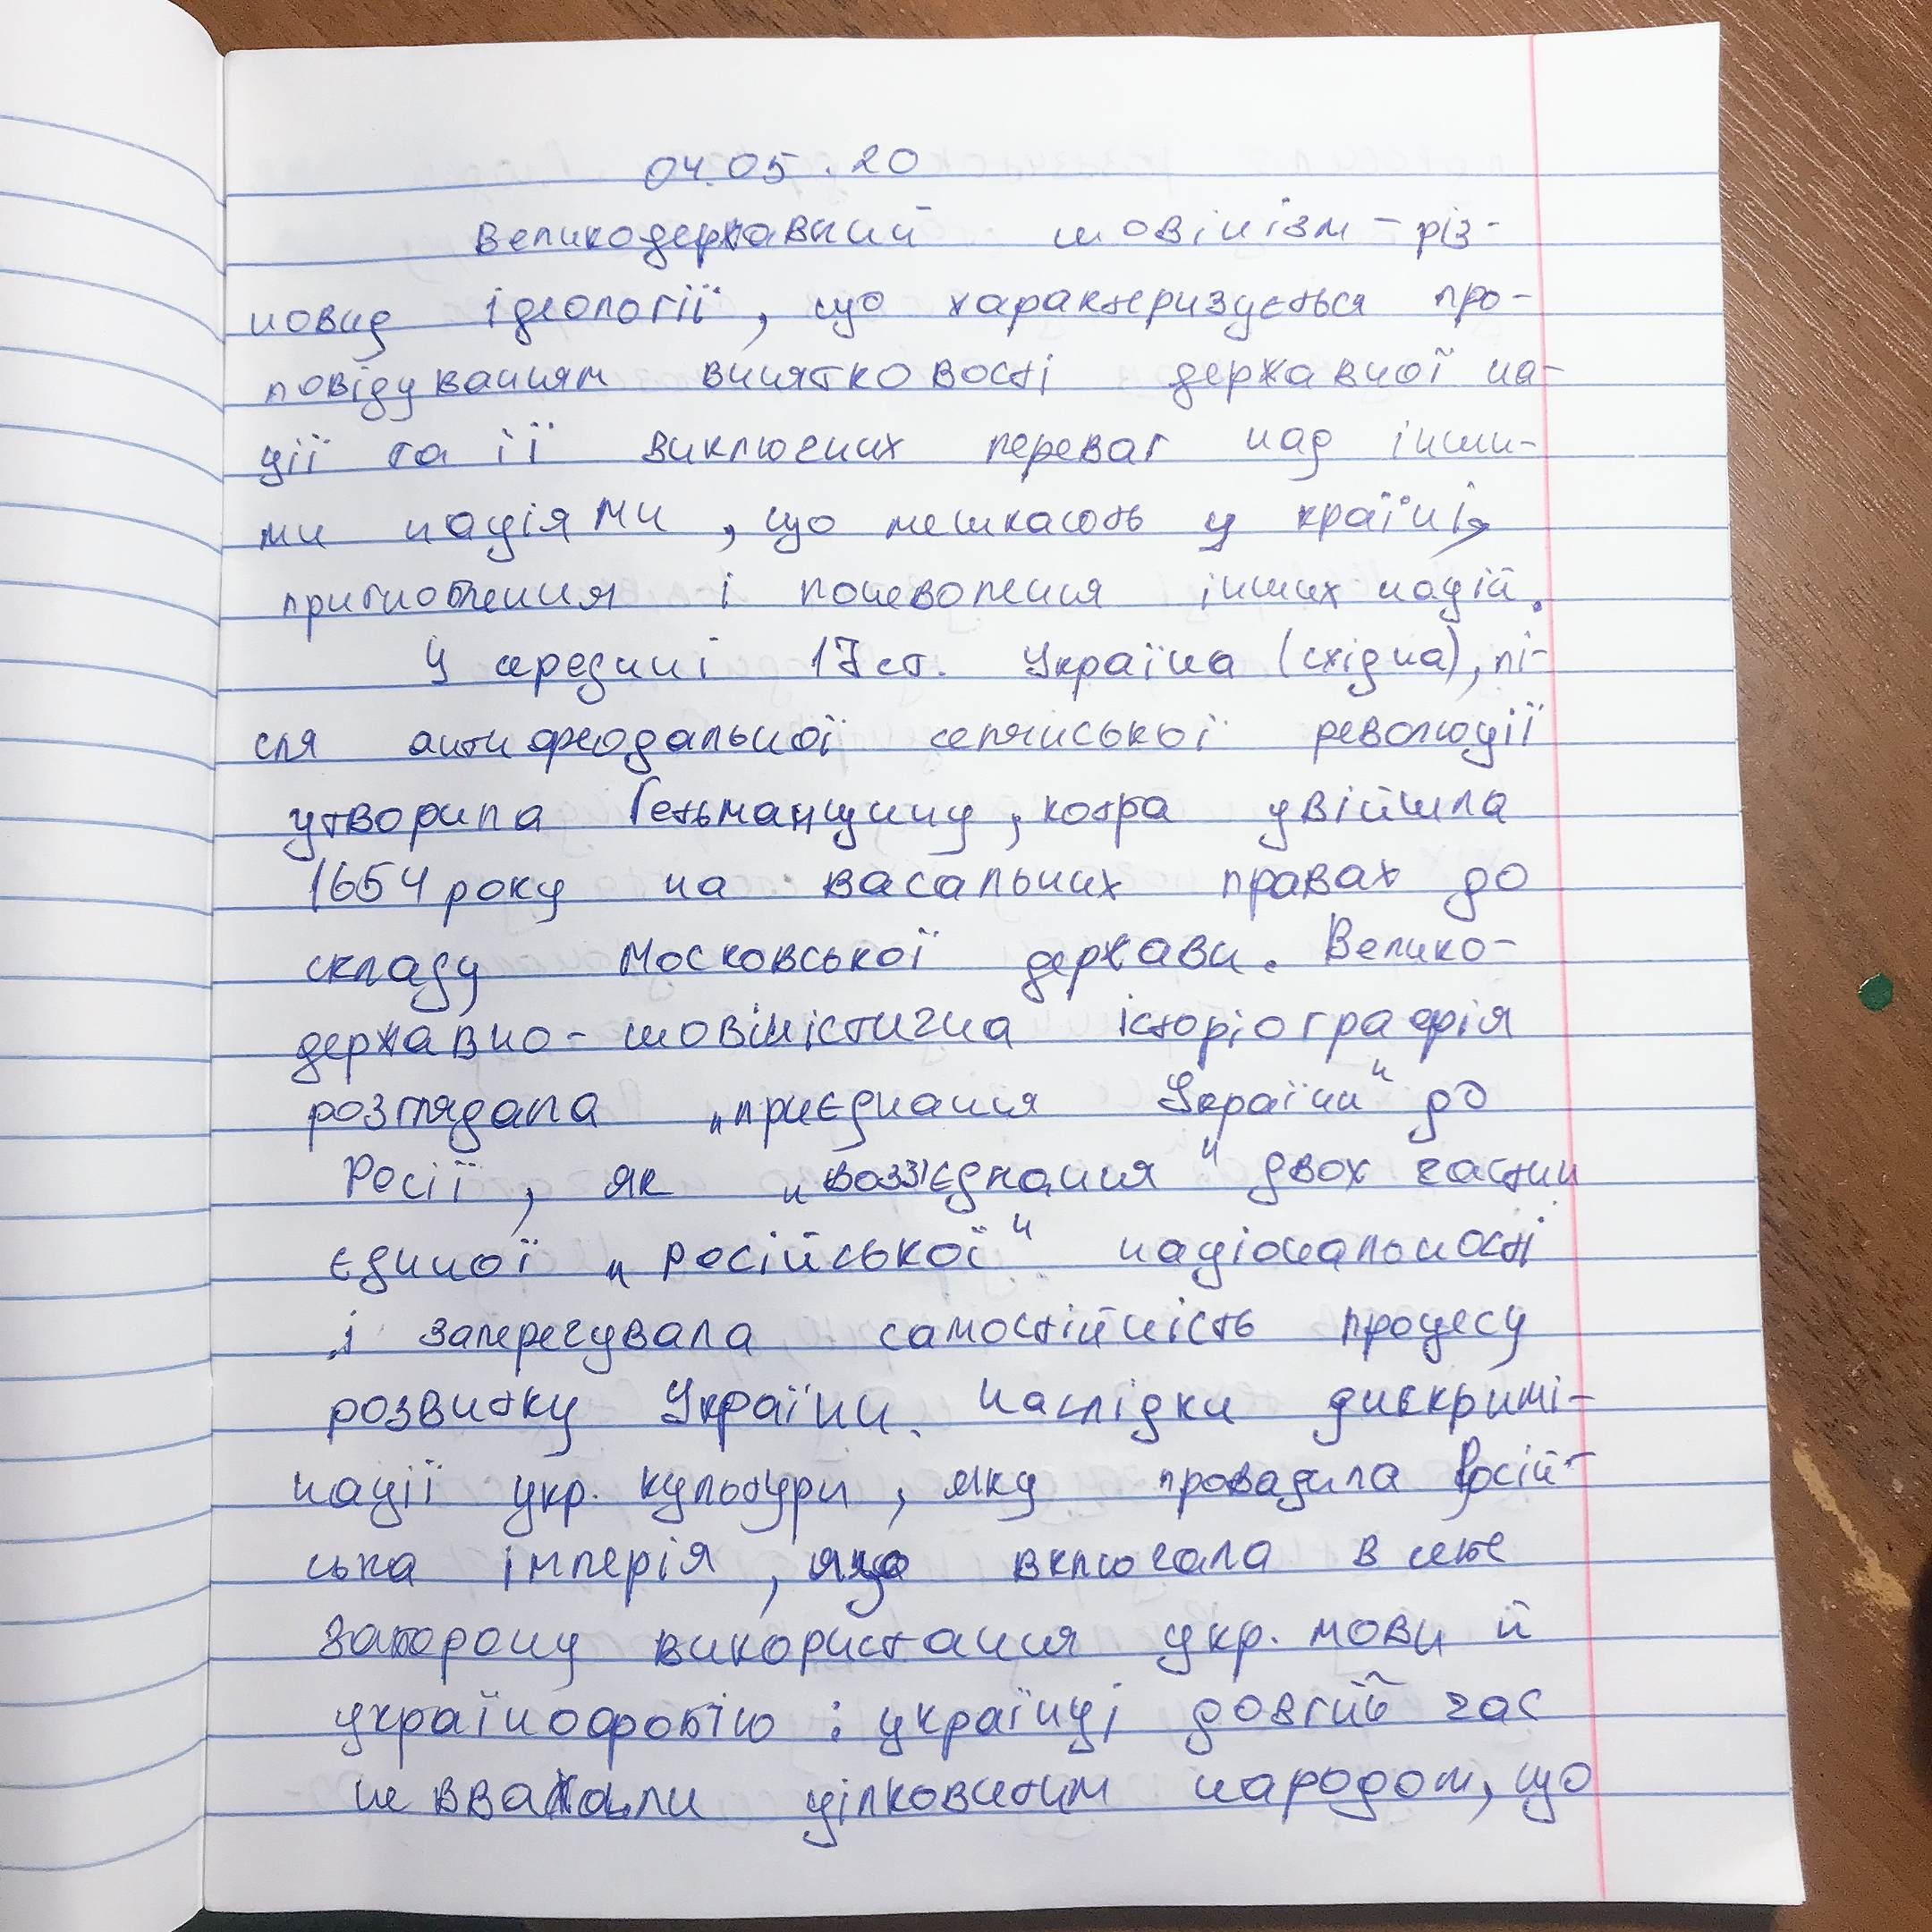 04.05.20
Великодержавний шовінізм – різ-
новид ідеології, що характеризується про-
повідуванням винятковості державної на-
ції та її виключних переваг над інши-
ми націями, що мешкають у країні,
пригноблення і поневолення інших націй.
У середині 17 ст. Україна (східна), пі-
сля антифеодальної селянської революції
утворила Гетьманщину, котра увійшла
1654 року на васальних правах до
складу Московської держави. Велико-
державно-шовіністична історіографія
розглядала „приєднання України" до
Росії, як „возз'єднання" двох частин
єдиної „російської" національності
і заперечувала самостійність процесу
розвитку України. Наслідки дискримі-
нації укр. культури, яку провадила Росій-
ська імперія, що включала в себе
заборону використання укр. мови й
українофобію: українці довгий час
не вважали цілковитим народом, що